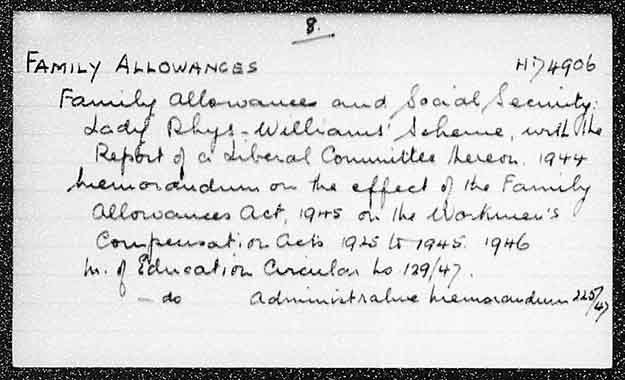 8.
FAMILY ALLOWANCES HD4906
Family allowances and Social Security:
Lady Rhys-Williams' Scheme, with the
Report of a Liberal Committee thereon. 1944
Memorandum on the effect of the Family
Allowances Act, 1945 on the Workmen's
Compensation Acts 1925 to 1945. 1946
M. of Education Circular No 129/47.
— do Administrative Memorandum 225/47